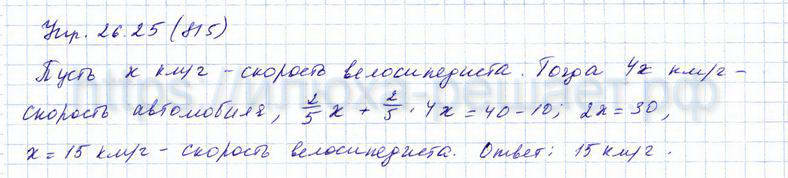 Упр. 26.25 (815)
Пусть x км/ч - скорость велосипедиста. Тогда 4x км/ч -
скорость автомобиля, 2/5 x + 2/5 · 4x = 40 - 10; 2x = 30,
x = 15 км/ч - скорость велосипедиста. Ответ: 15 км/ч.